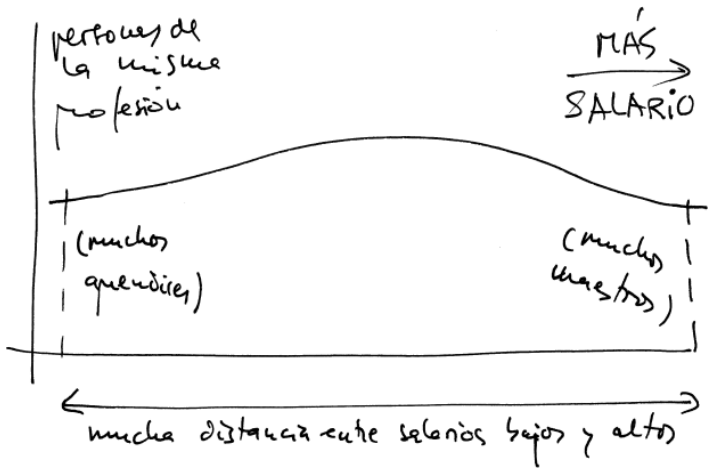 personas de
la misma
profesión
MÁS
SALARIO
(muchos
aprendices)
(muchos
maestros)
mucha distancia entre salarios bajos y altos